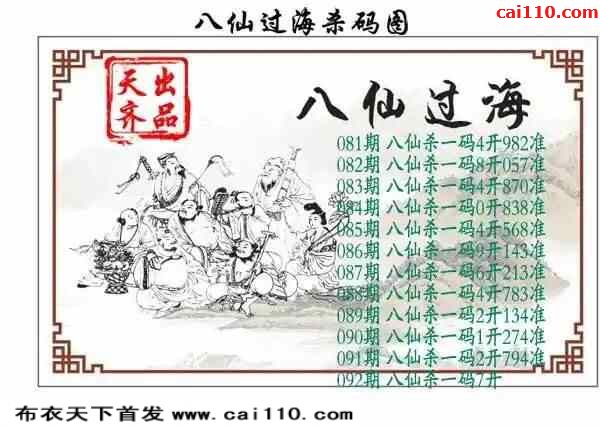 八仙过海杀码图
cai110.com
天齐出品
八仙过海
081期 八仙杀一码4开982准
082期 八仙杀一码8开057准
083期 八仙杀一码4开870准
084期 八仙杀一码0开838准
085期 八仙杀一码4开568准
086期 八仙杀一码9开143准
087期 八仙杀一码6开213准
088期 八仙杀一码4开783准
089期 八仙杀一码2开134准
090期 八仙杀一码1开274准
091期 八仙杀一码2开794准
092期 八仙杀一码7开
布衣天下首发 www.cai110.com